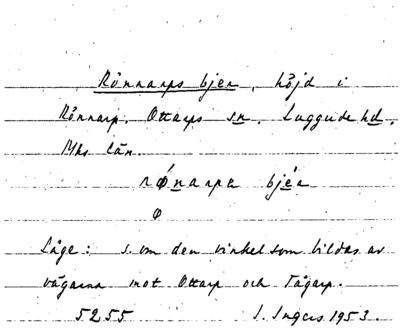 Rönnarps bjer, höjd i
Rönnarp. Ottarps sn. Luggude hd.
Mhs län.
rǿnarpa bjér
ø
Läge: s. om den vinkel som bildas av
vägarna mot Ottarp och Tågarp.
5255 I. Ingers 1953.